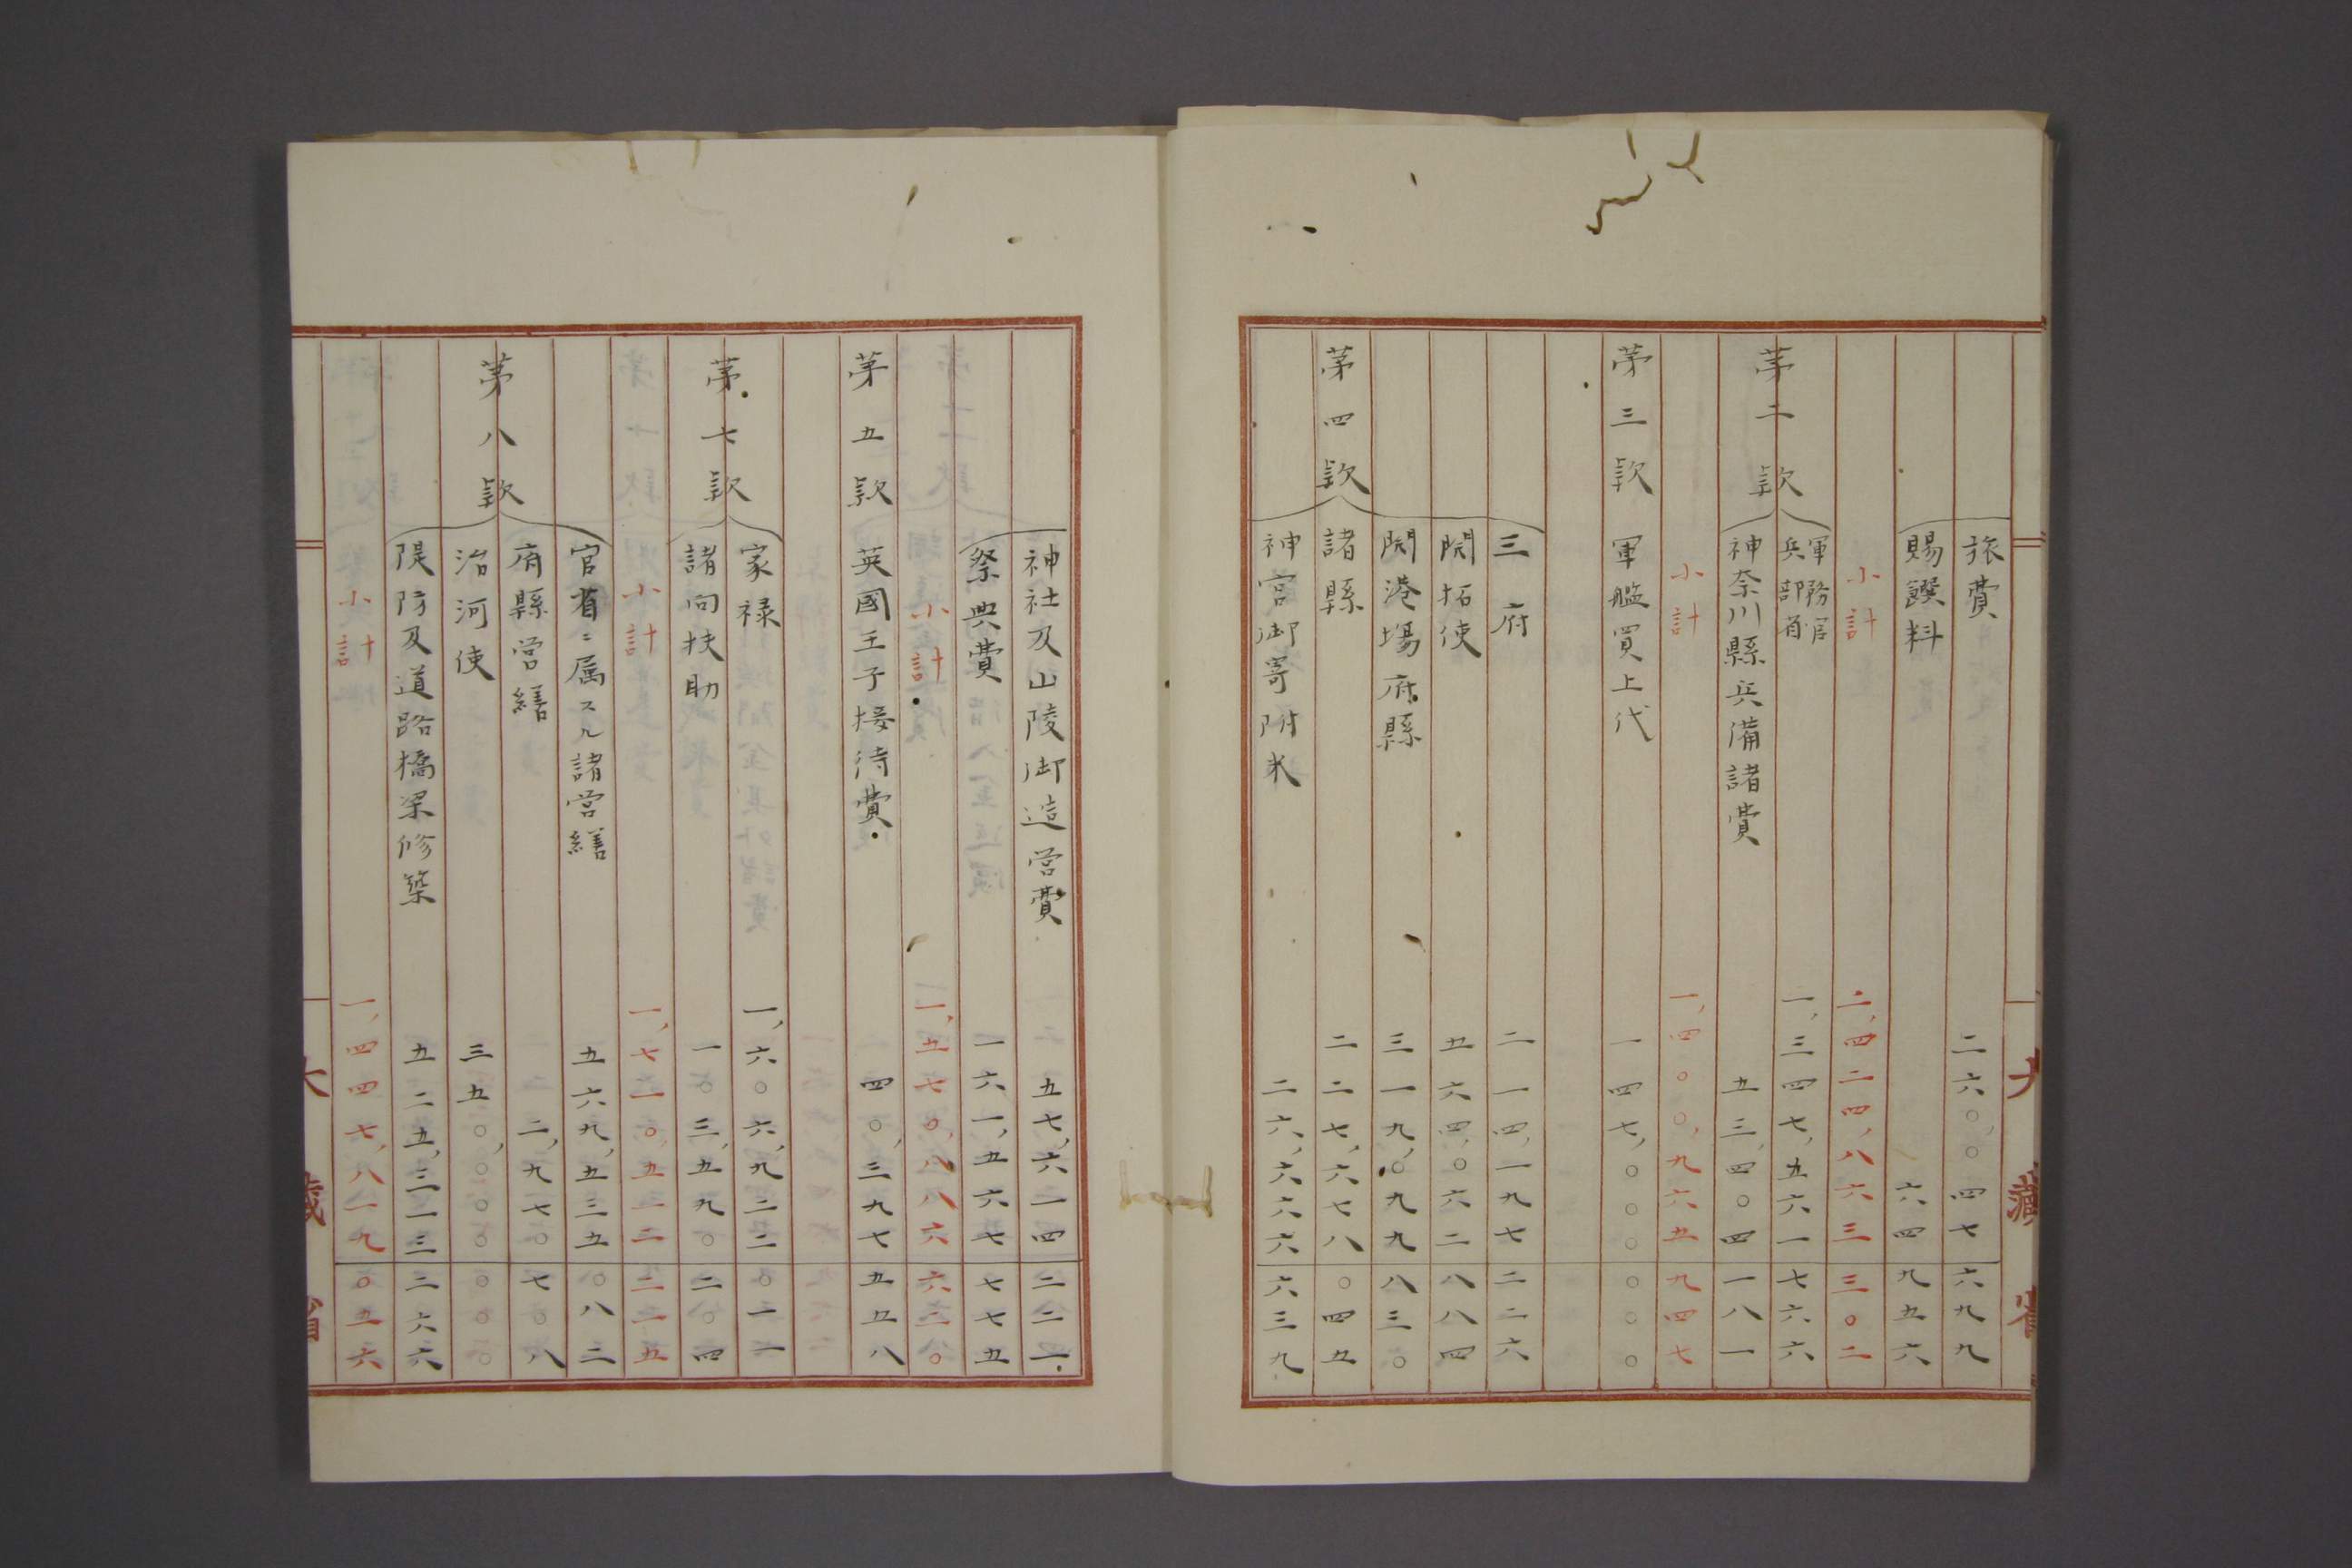 旅費 二六〇,〇四七 六九九
賜饌料 六四 九五六
小計 二,四二四,八六三 三〇二
第二款
軍務官
兵部省 一,三四七,五六一 七六六
神奈川縣兵備諸費 五三,四〇四 一八一
小計 一,四〇〇,九六五 九四七
第三款 軍艦買上代 一四七,〇〇〇 〇〇〇
第四款
三府 二一四,一九七 二二六
開拓使 五六四,〇六二 八八四
開港場府縣 三一九,〇九九 八三〇
諸縣 二二七,六七八 〇四五
神宮御寄附米 二六,六六六 六三九
大藏省
神社及山陵御造営費 五七,六一四 二二一
祭典費 一六一,五六七 七七五
小計 一,五七〇,八八六 六二〇
第五款 英國王子接待費 四〇,三九七 五五八
第七款
家禄 一,六〇六,九二二 〇二一
諸向扶助 一〇三,五九〇 二〇四
小計 一,七一〇,五一二 二二五
第八款
官省ニ属スル諸営繕 五六九,五三五 〇八二
府縣営繕 二,九七〇 七〇八
治河使 三五〇,〇〇〇 〇〇〇
堤防及道路橋梁修築 五二五,三一三 二六六
小計 一,四四七,八一九 〇五六